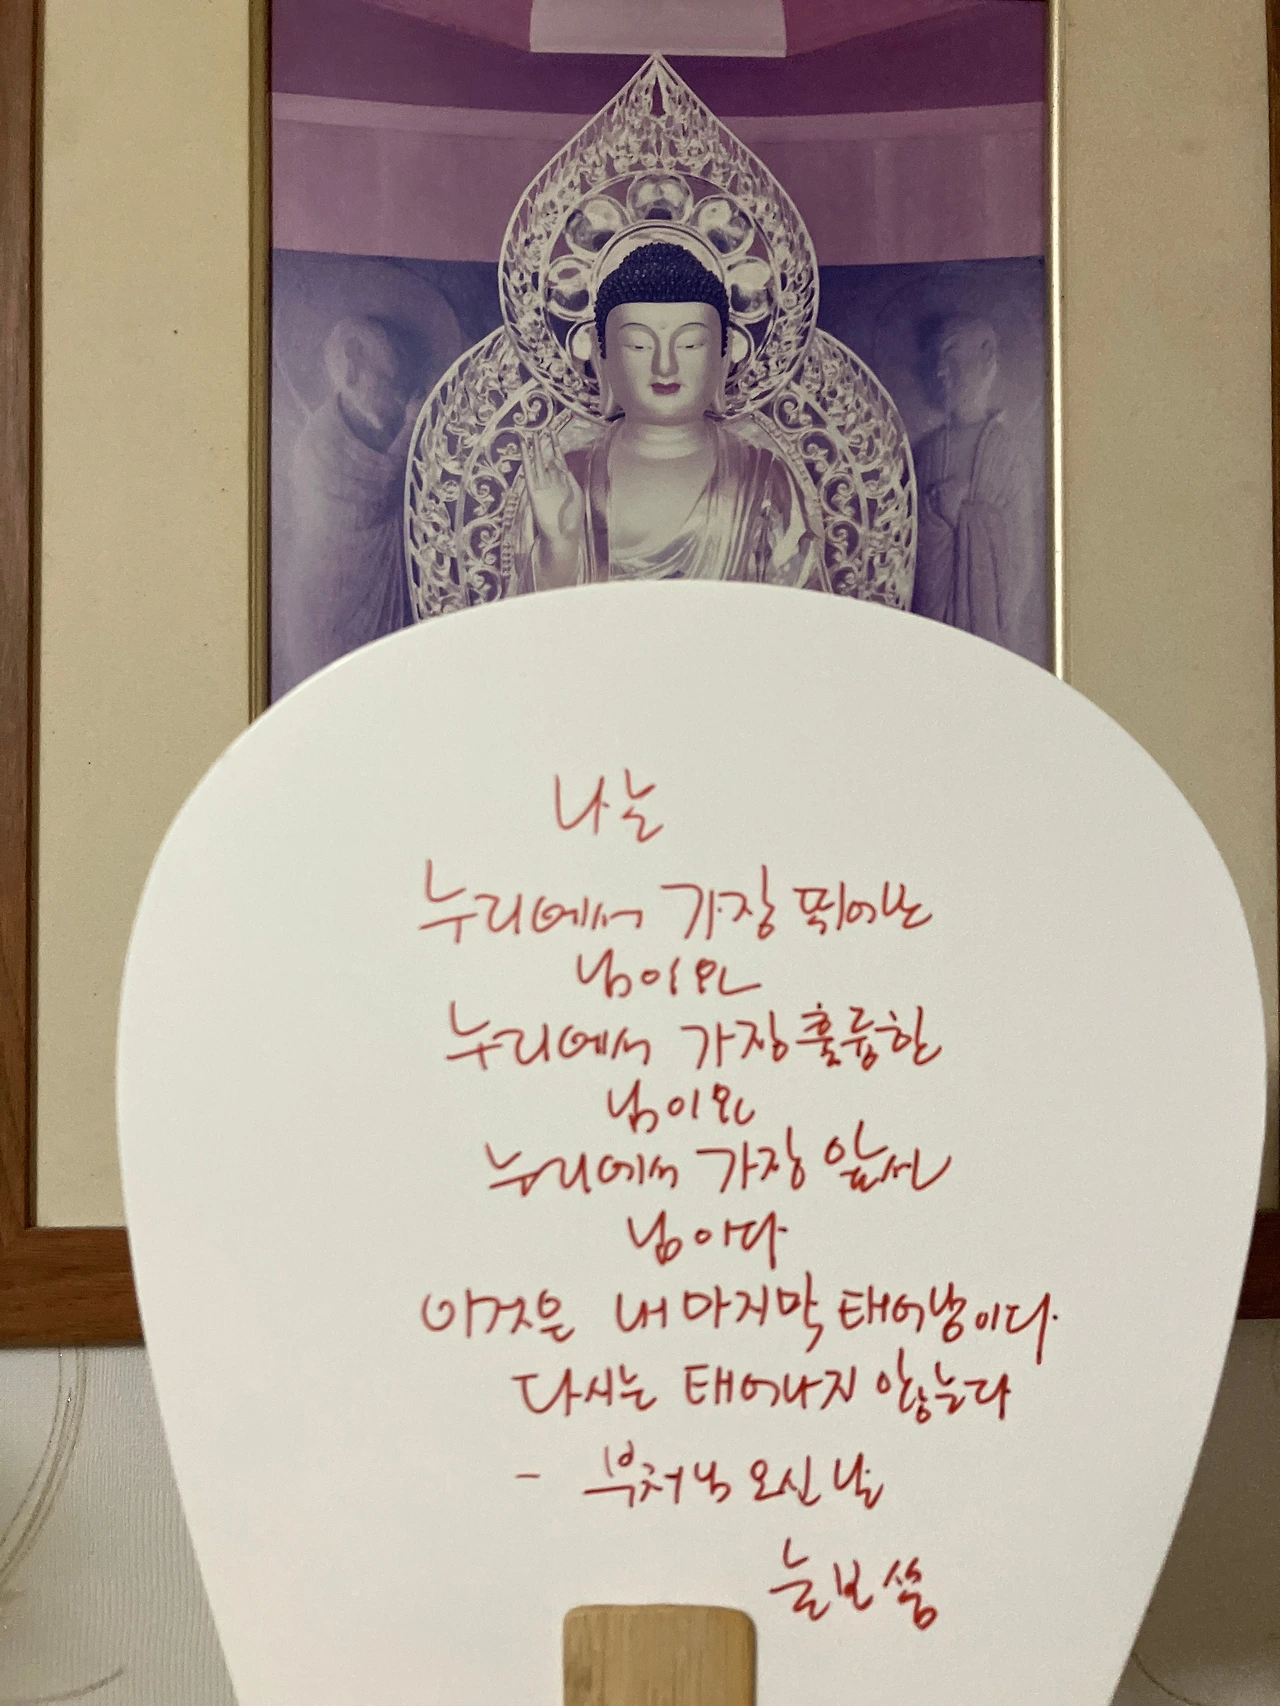 나는
누리에서 가장 뛰어난
님이요
누리에서 가장 훌륭한
님이요
누리에서 가장 앞선
님이다
이것은 내 마지막 태어남이다.
다시는 태어나지 않는다
- 부처님 오신 날
늘보 씀